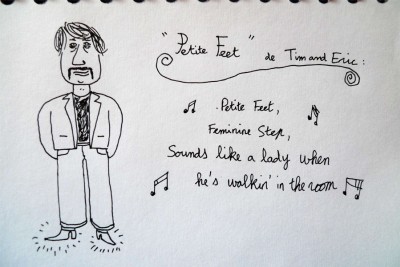 "Petite Feet" de Tim and Eric:
. Petite Feet,
Feminine Step,
Sounds like a lady when
he's walkin' in the room